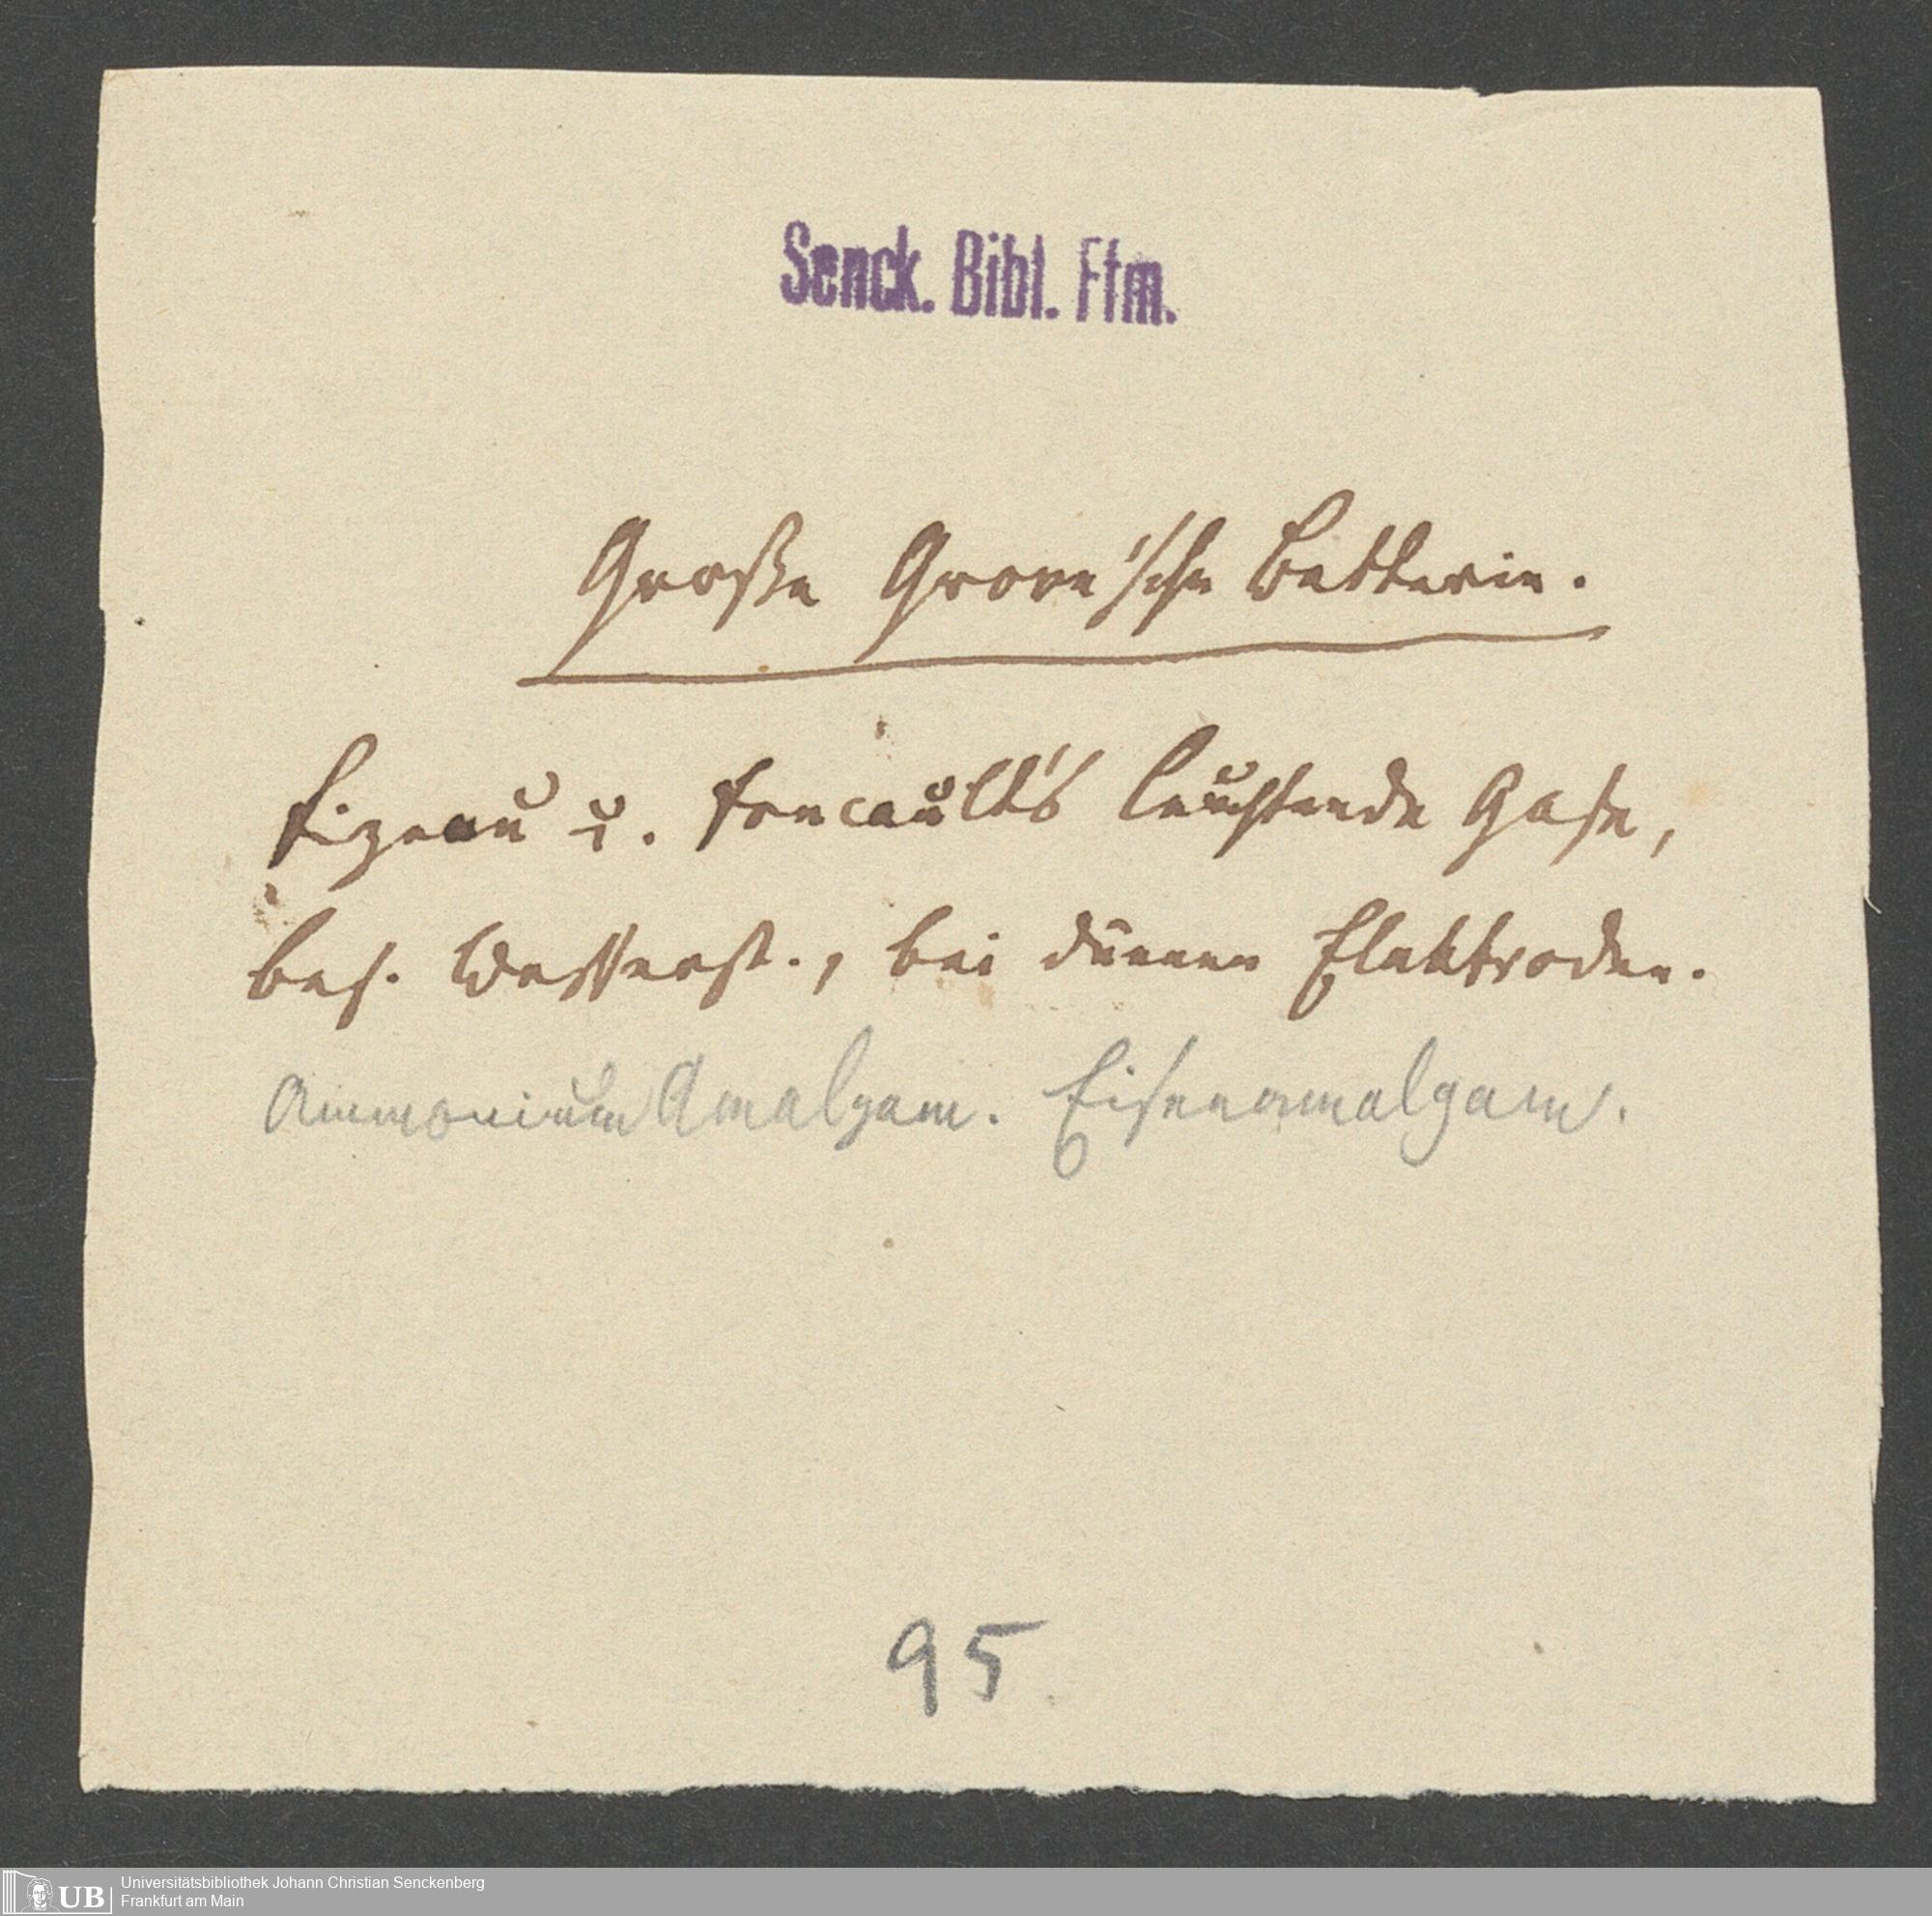 Senck. Bibl. Ffm.
Große Grove'sche Batterie.
Fizeau u. Foucault's leuchtende Gase,
bes. Wasserst., bei dünnen Elektroden.
Ammonium Amalgam. Eisenamalgam.
95
UB Universitätsbibliothek Johann Christian Senckenberg
Frankfurt am Main